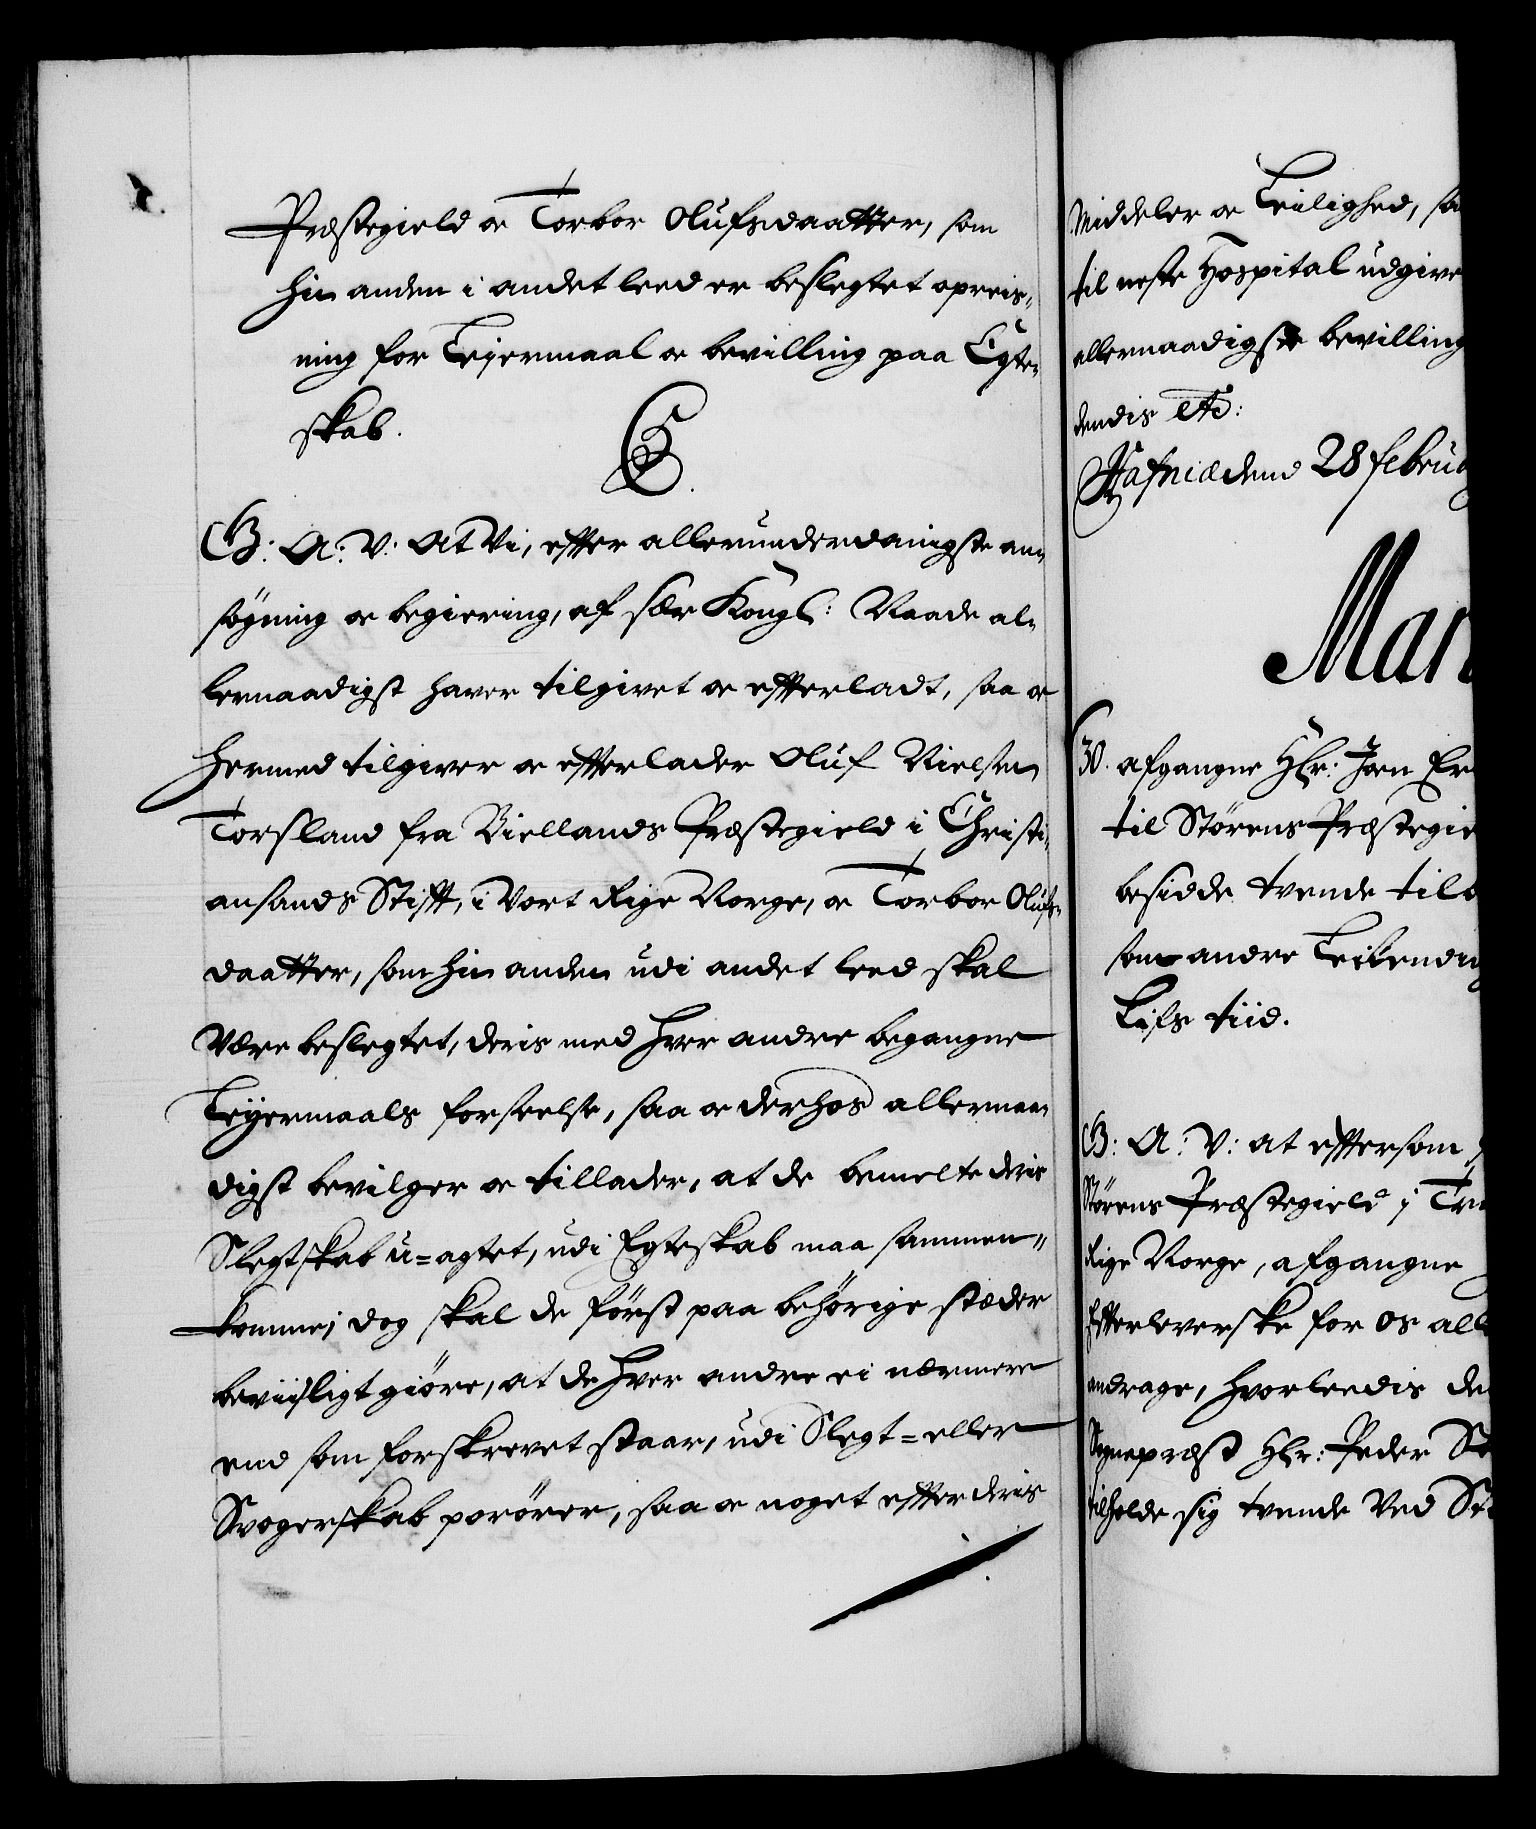 Præstegield oc Torbor Olufsdaatter, som
hin anden i andet leed er beslegtet opreis-
ning for Leyermaal oc bevilling paa Egte-
skab.
G. A. V. At Vi, efter allerunderdanigste an-
søgning oc begiering, af sær Kongl: Naade al-
lernaadigst haver tilgivet oc efterladt, saa oc
hermed tilgiver oc efterlader Oluf Nielsen
Torsland fra Biellands Præstegield i Christi-
ansands Stift, i Vort Rige Norge, oc Torbor Olufs-
daatter, som hin anden udi andet leed skal
Være beslegtet, deris med hver andre begangne
Leyermaals forseelse, saa oc derhos allernaa-
digst bevilger oc tillader, at de bemelte deris
Slegtskab u-agtet, udi Egteskab maa sammen-
komme; dog skal de først paa behørige stæder
beviisligt giøre, at de hver andre ei nærmere
end som forskrevet staar, udi Slegt- eller
Svogerskab porører, saa oc noget efter deris
Middeler oc Leilighed, saa
til neste Hospital udgive
allernaadigste bevilling
dendis etc:
Hafniæ dend 28 februa
Mar
30. afgangne Hr: Jørn Er
til Størens Præstegie
besidde tvende til
som andre Leilending
Lifs tiid.
G: A: V: at eftersom
Størens Præstegield i Tr
Rige Norge, afgangne
Efterleverske for os all
andrage, hvorleedis de
Sognepræst Hr: Peder S
tilholde sig tvende Ved St